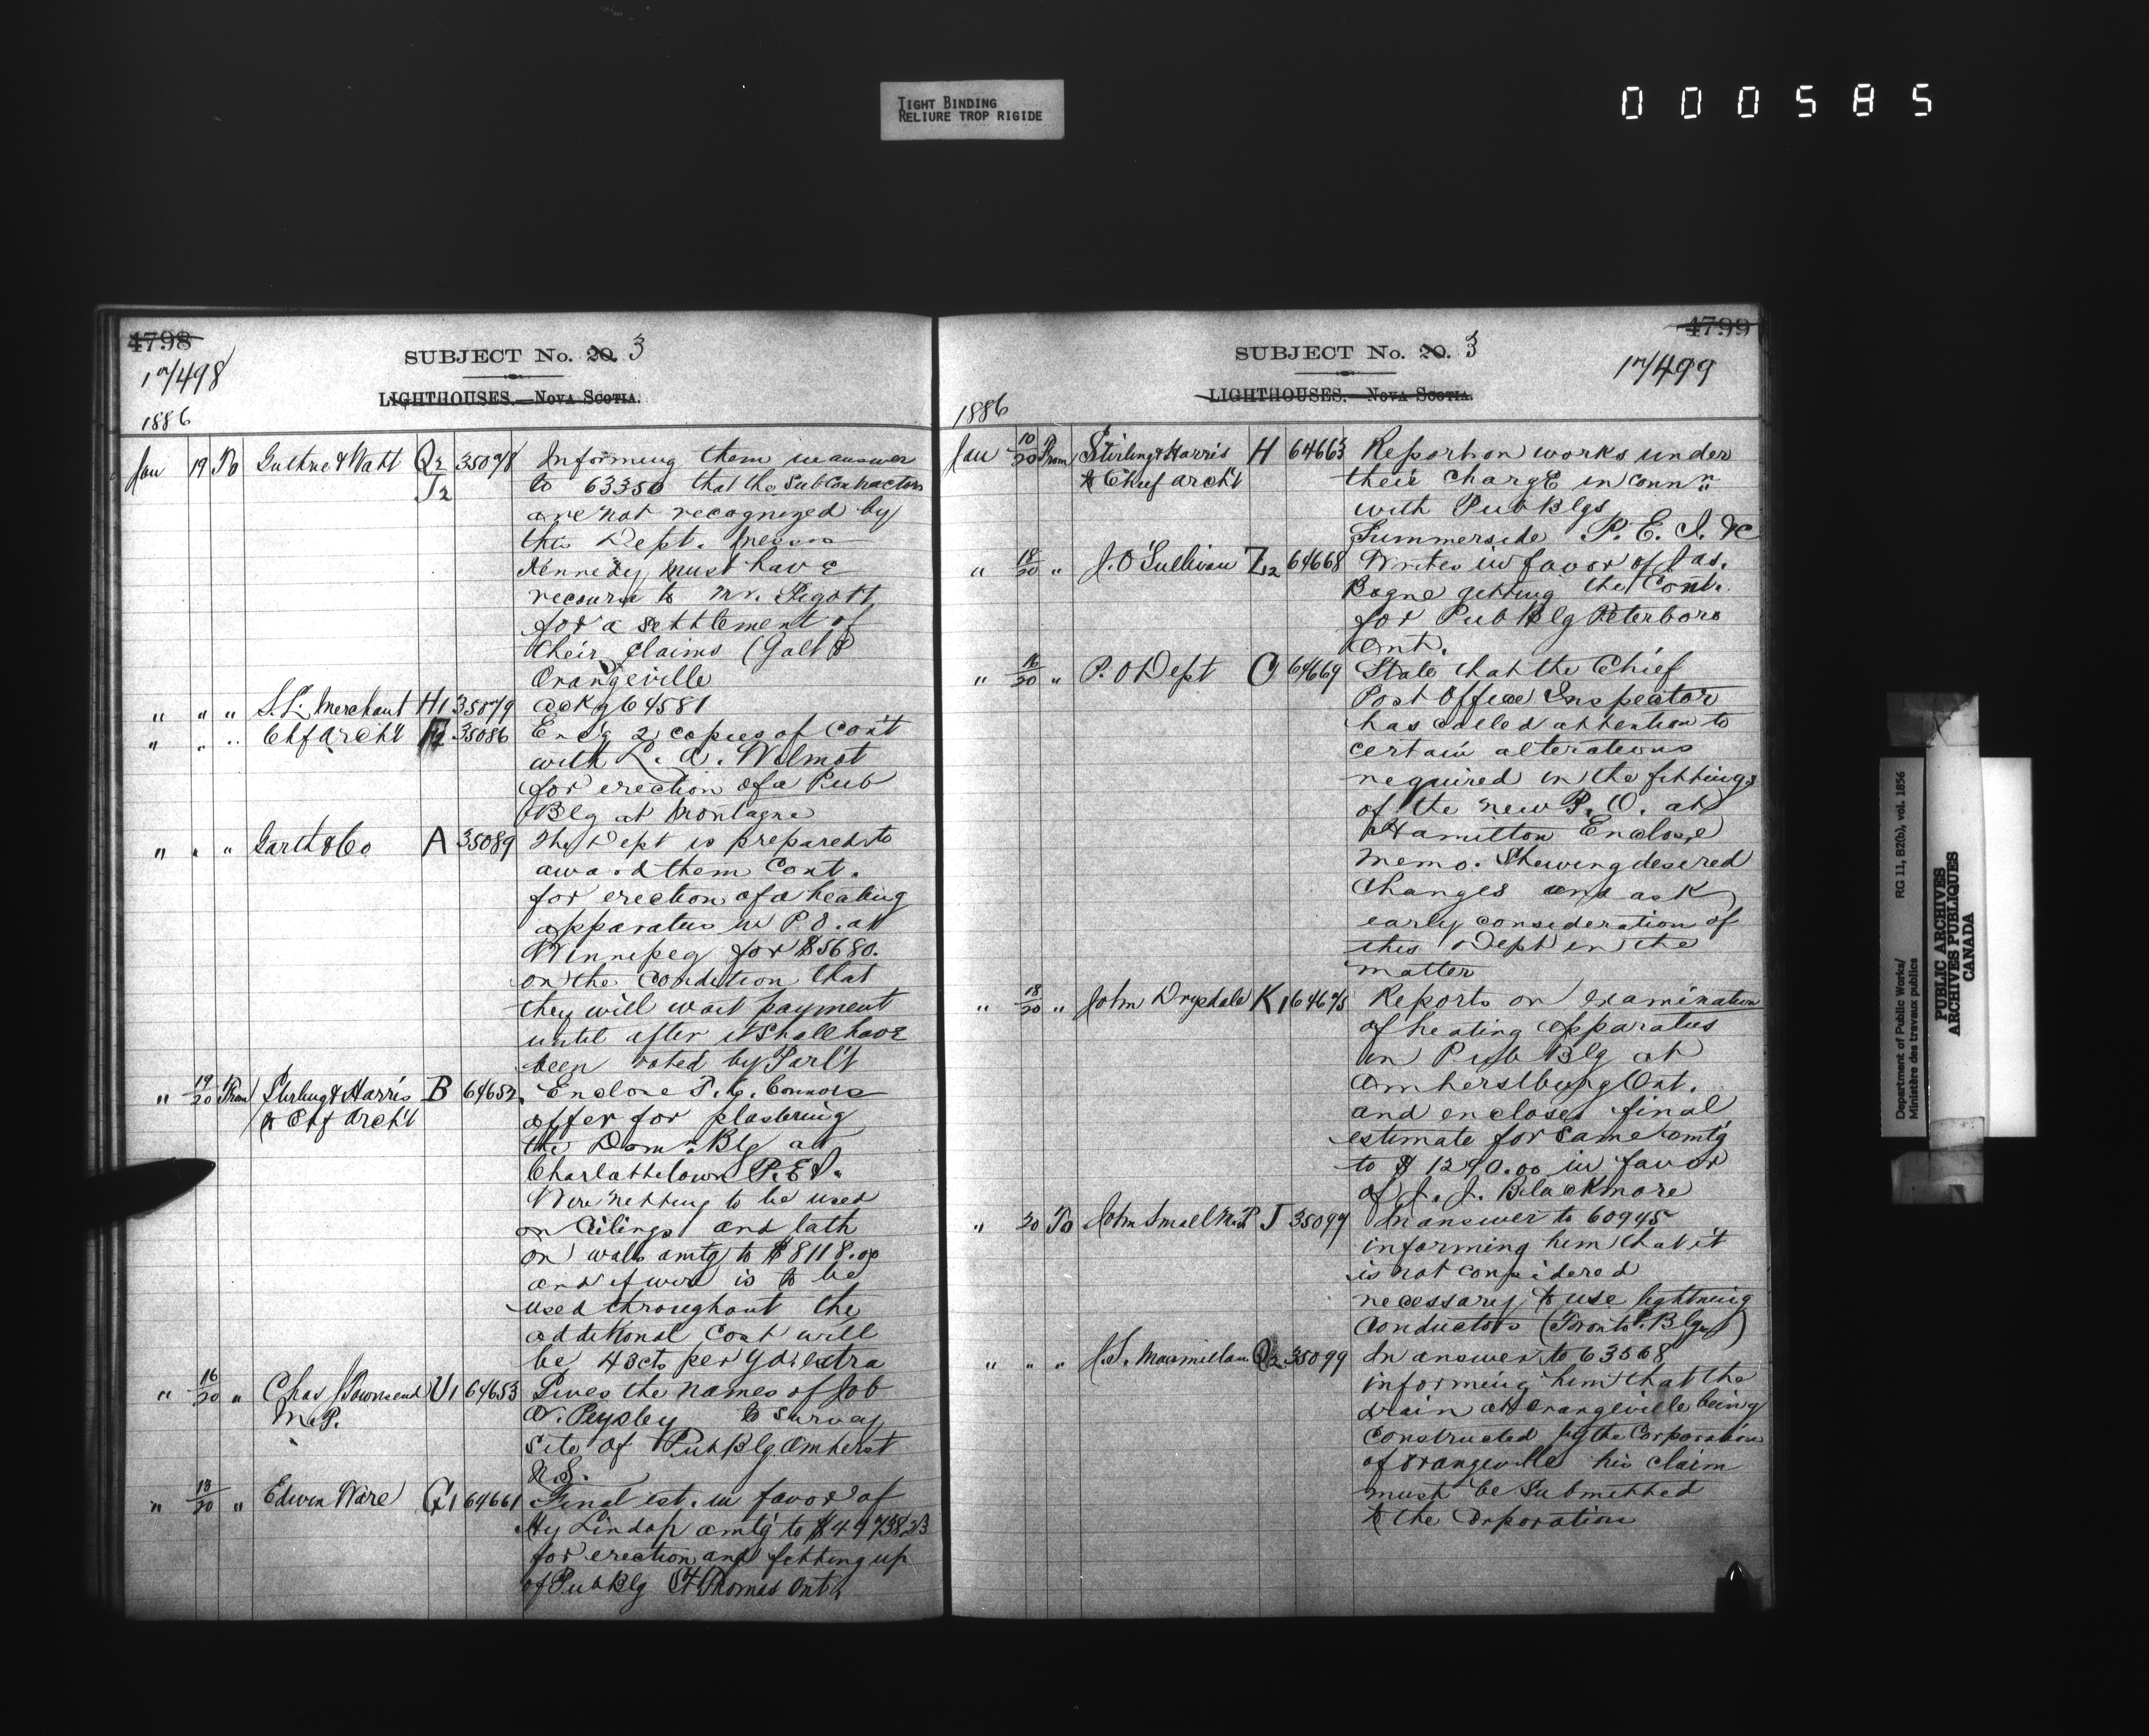 TIGHT BINDING
RELIURE TROP RIGIDE
000585
4798
SUBJECT No. 20. 3
17/498
LIGHTHOUSES.—NOVA SCOTIA.
1886
Jan 19 To Guthrie & Watt Q2 35078 Informing them in answer
J2 to 63350 that the Subcontractors
are not recognized by
this Dept. Messrs
Kennedy must have
recourse to Mr. Pigott
for a settlement of
their claims (Galt P
Orangeville
" " " S. L. Merchant H1 35079 ackg 64581
" " " Chf Archt F2 35086 Encg 2 copies of Cont
with L. A. Wilmot
for erection of a Pub
Blg at Montague
" " " Garth & Co A 35089 The Dept is prepared to
award them Cont.
for erection of a heating
apparatus in P.O. at
Winnipeg for $5680.
on the Condition that
they will wait payment
until after it shall have
been voted by Parl't
" 19/20 From Stirling & Harris B 64652 Enclose P. C. Connors
& Chf Archt offer for plastering
the Domn Blg at
Charlottetown P.E.I.
Wire netting to be used
on Cilings and lath
on walls amtg to $8118.00
and if wire is to be
used throughout the
additional Cost will
be 43cts per yd. extra
" 16/20 " Chas Townsend U1 64653 Gives the names of Job
M.P. N. Pepsley to survey
site of Pub Blg. Amherst
N.S.
" 13/20 " Edwin Ware G1 64661 Final est. in favor of
Hy Lindop amtg to $49738.23
for erection and fitting up
of Pub Blg St Thomas Ont.
4799
SUBJECT No. 20. 3
17/499
LIGHTHOUSES.—NOVA SCOTIA.
1886
Jan 10/20 From Stirling & Harris H 64663 Report on works under
& Chief archt their charge in Connn
with Pub Blgs
Summerside P.E.I. &c
" 18/20 " J. O'Sullivan Z2 64668 Writes in favor of Jas.
Bogue getting the Cont.
for Pub Blg Peterboro
Ont.
" 16/20 " P.O Dept O 64669 State that the Chief
Post Office Inspector
has called attention to
certain alterations
required in the fittings
of the new P.O. at
Hamilton Enclose
memo. Shewing desered
Changes and ask
early consideration of
this Dept in the
matter
" 18/20 " John Drysdale K1 64675 Reports on examination
of heating apparatus
in Pub Blg at
Amherstburg Ont.
and encloses final
estimate for same amtg
to $1290.00 in favor
of J. J. Blackmore
" 20 To John Small M.P J 35097 In answer to 60945
informing him that it
is not considered
necessary to use lightning
Conductors (Toronto P. Blgs)
" " " J.S. Macmillan Q2 35099 In answer to 63568
informing him that the
drain at Orangeville being
Constructed by the Corporation
of Orangeville his claim
must be Submitted
to the Corporation
Department of Public Works/
Ministère des travaux publics
RG 11, B2(b), vol. 1856
PUBLIC ARCHIVES
ARCHIVES PUBLIQUES
CANADA